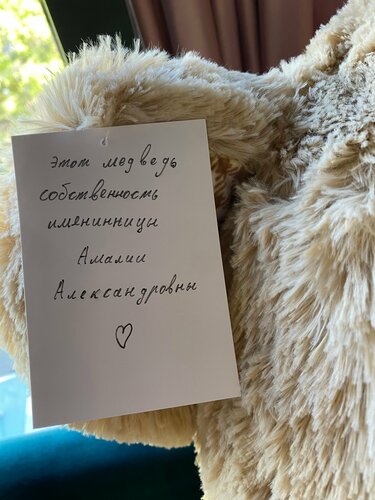 этот медведь
собственность
именинницы
Амалии
Александровны
♡